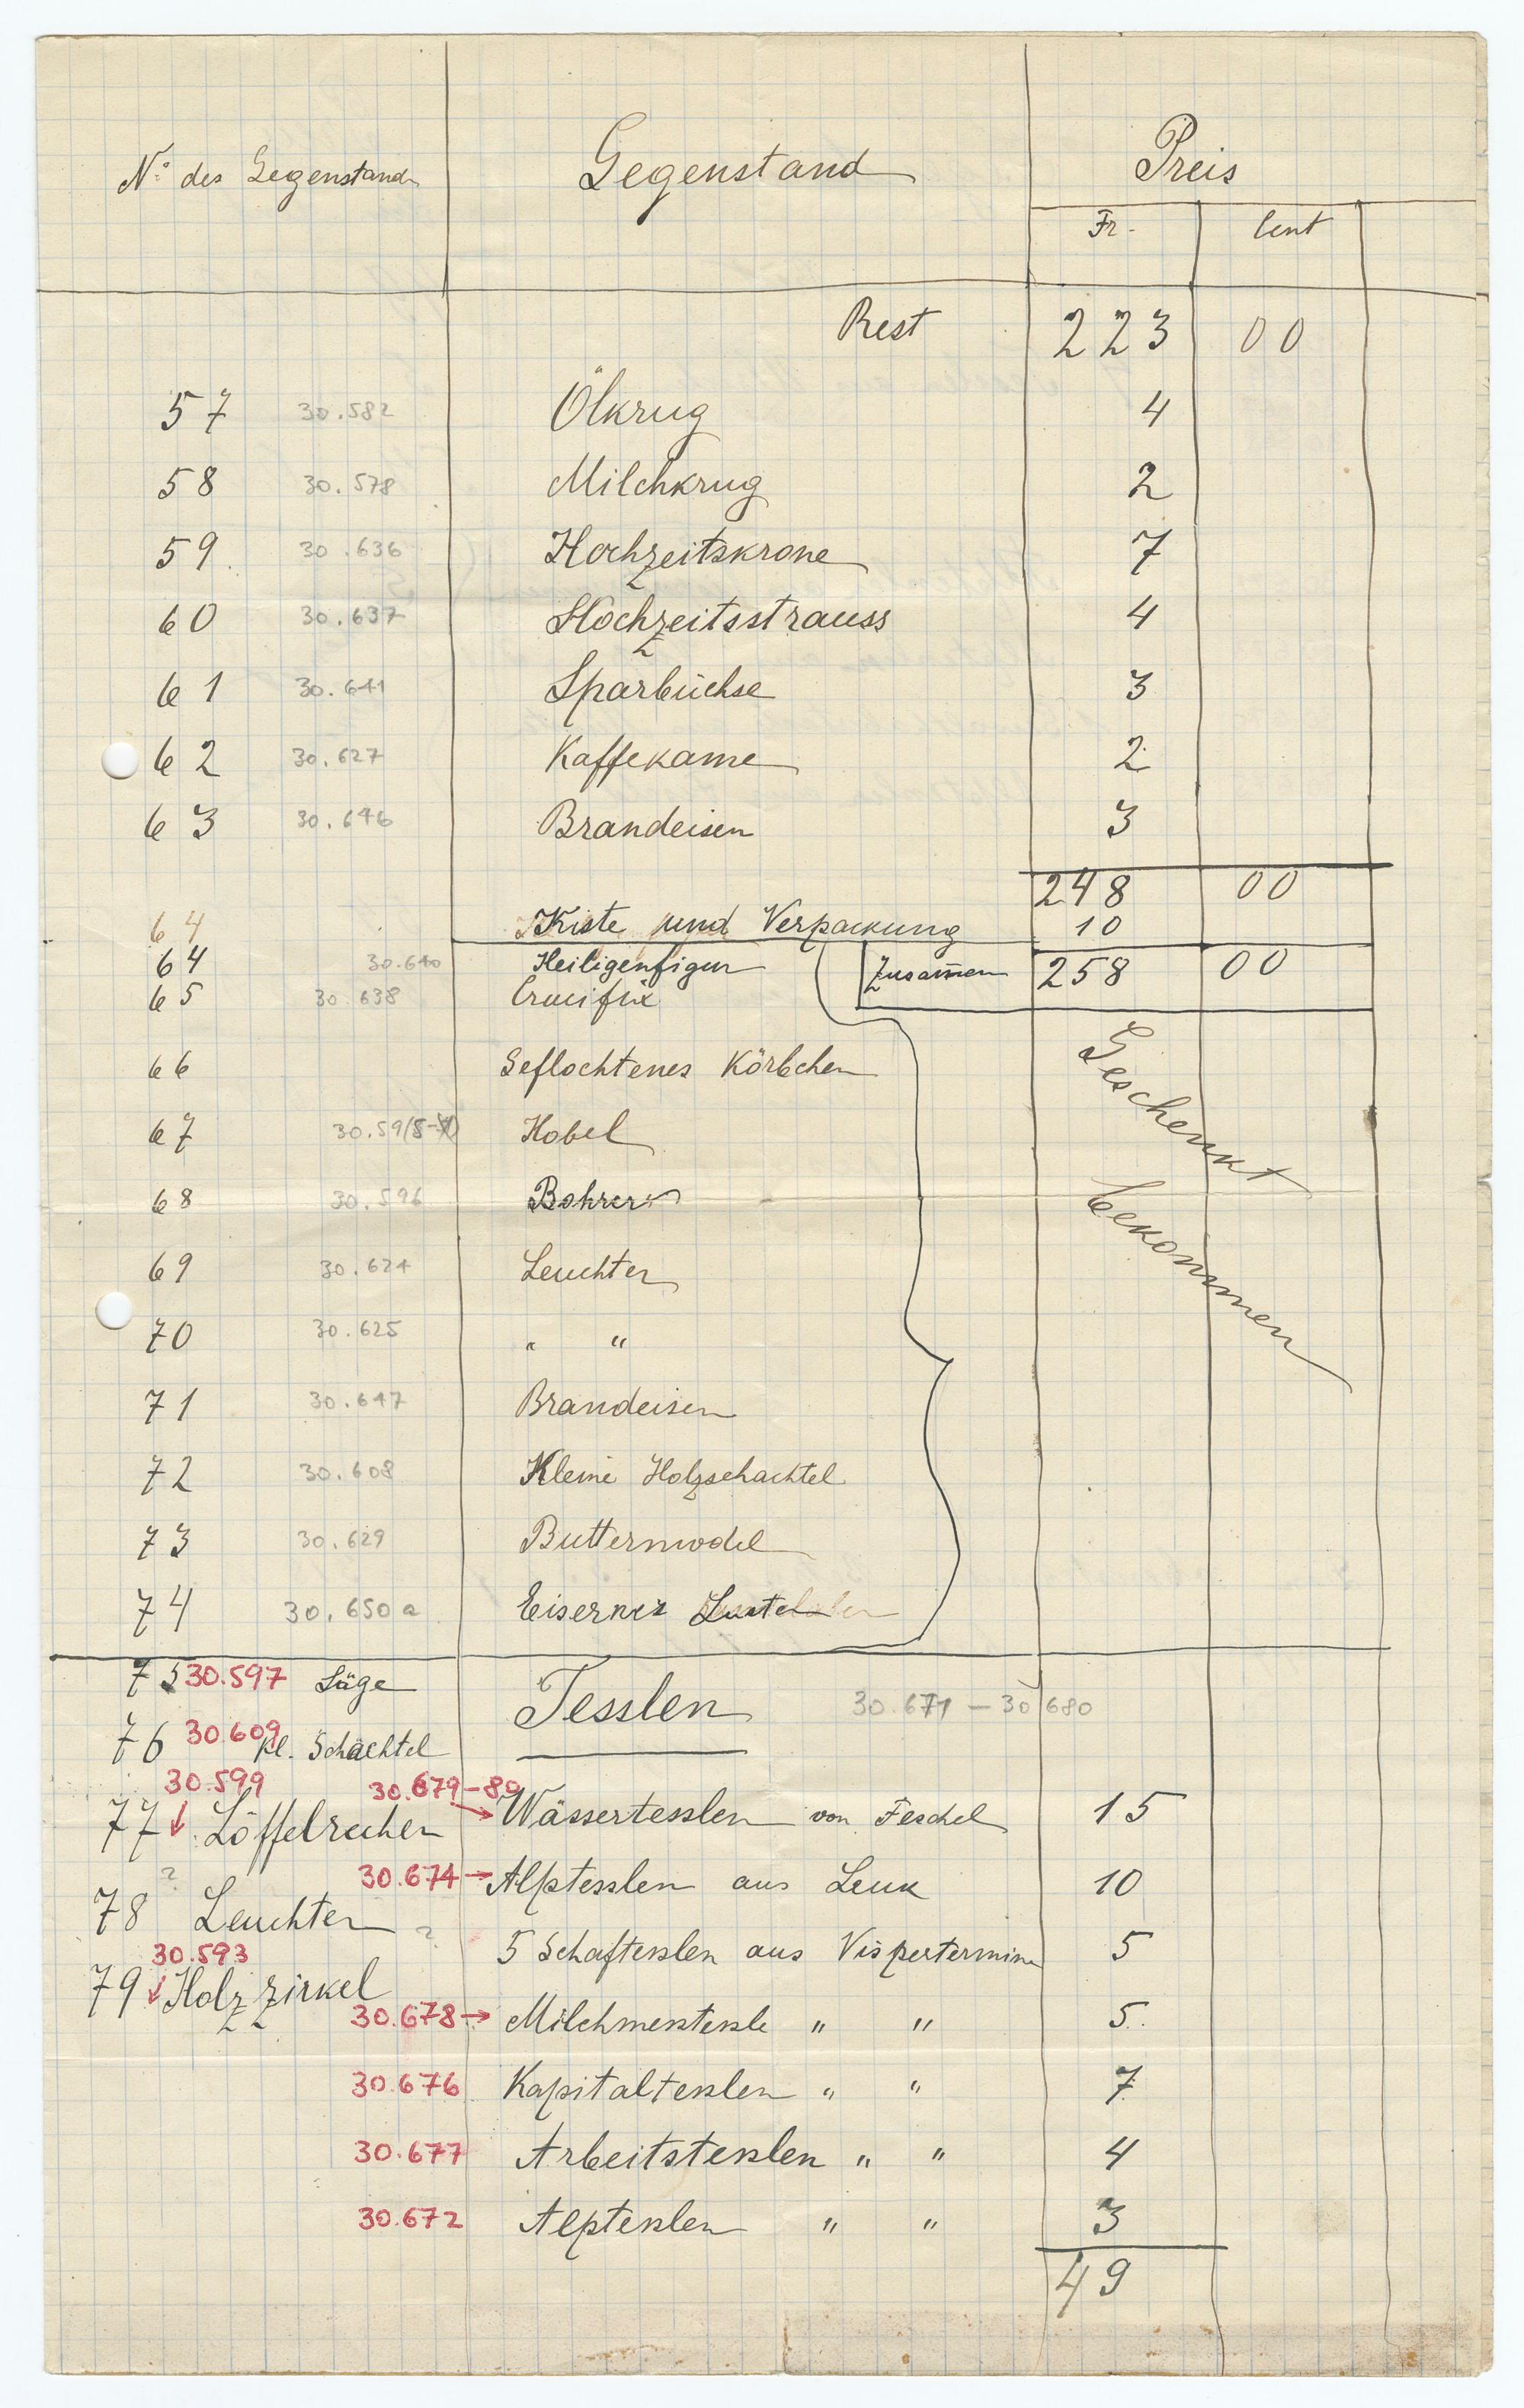 No. des Gegenstands Gegenstand Preis
Fr. Cent
Rest 223 00
57 30.582 Ölkrug 4
58 30.578 Milchkrug 2
59. 30.636 Hochzeitskrone 7
60 30.637 Hochzeitsstrauss 4
61 30.641 Sparbüchse 3
62 30.627 Kaffekanne 2
63 30.646 Brandeisen 3
248 00
64 Kiste und Verpackung 10
64 30.640 Heiligenfigur Zusammen 258 00
65 30.638 Crucifix
66 Geflochtenes Körbchen
67 Hobel
68 30.596 Bohrer
69 30.624 Leuchter
70 30.625 " "
71 30.647 Brandeisen
72 30.608 Kleine Holzschachtel
73 30.629 Buttermodel
74 30.650a Eisernes
Geschenkt
bekommen
75 30.597 Säge
Tesslen 30.671 – 30.680
76 30.609 kl. Schachtel
30.599
77 ↓ Löffelrechen
30.679–80 → Wässertesslen von Feschel 15
?
30.674 → Alptesslen aus Leuk 10
78 Leuchter ?
5 Schaftesslen aus Vispertermin 5
30.593
79 ↓ Holzzirkel
30.678 → Milchmesstessle " " 5.
30.676 Kapitaltesslen " " 7
30.677 Arbeitstesslen " " 4
30.672 Alptesslen " " 3
49